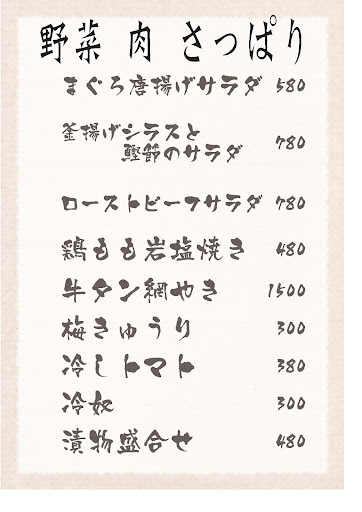 野菜 肉 さっぱり
まぐろ唐揚げサラダ 580
釜揚げシラスと
鰹節のサラダ 780
ローストビーフサラダ 780
鶏もも岩塩焼き 480
牛タン網やき 1500
梅きゅうり 300
冷しトマト 380
冷奴 300
漬物盛合せ 480